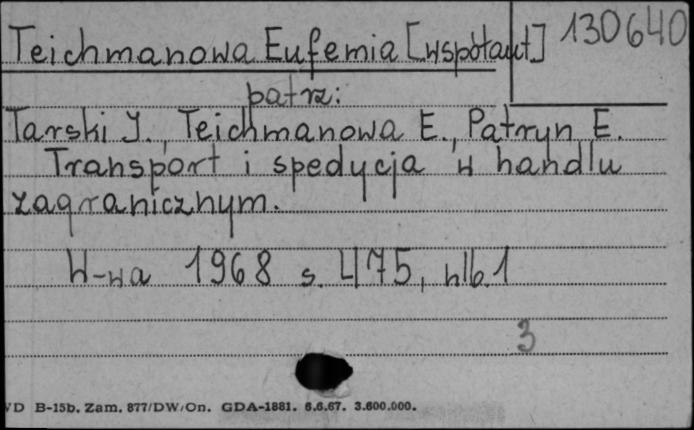 Teichmanowa Eufemia [współaut] 130640
patrz:
Tarski J., Teichmanowa E., Patryn E.
Transport i spedycja w handlu
zagranicznym.
W-wa 1968 s. 475, nlb.1
3
D B-15b. Zam. 877/DW/On. GDA-1881. 6.6.67. 3.600.000.